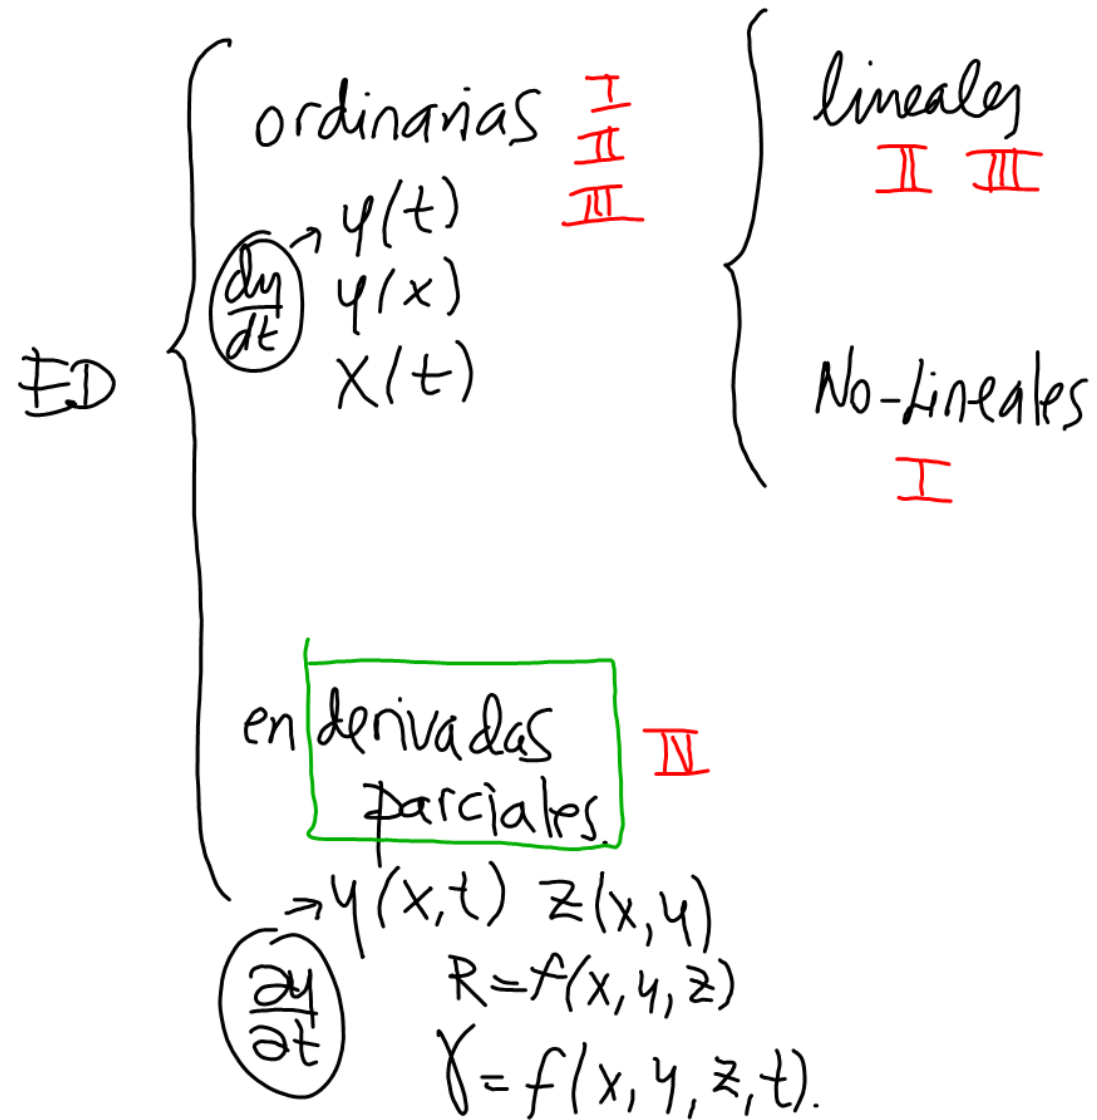 ED
ordinarias I
II
III
y(t)
dy/dt
y(x)
x(t)
lineales
II III
No-Lineales
I
en derivadas
parciales.
IV
y(x,t) z(x,y)
∂y/∂t
R=f(x,y,z)
γ=f(x,y,z,t).